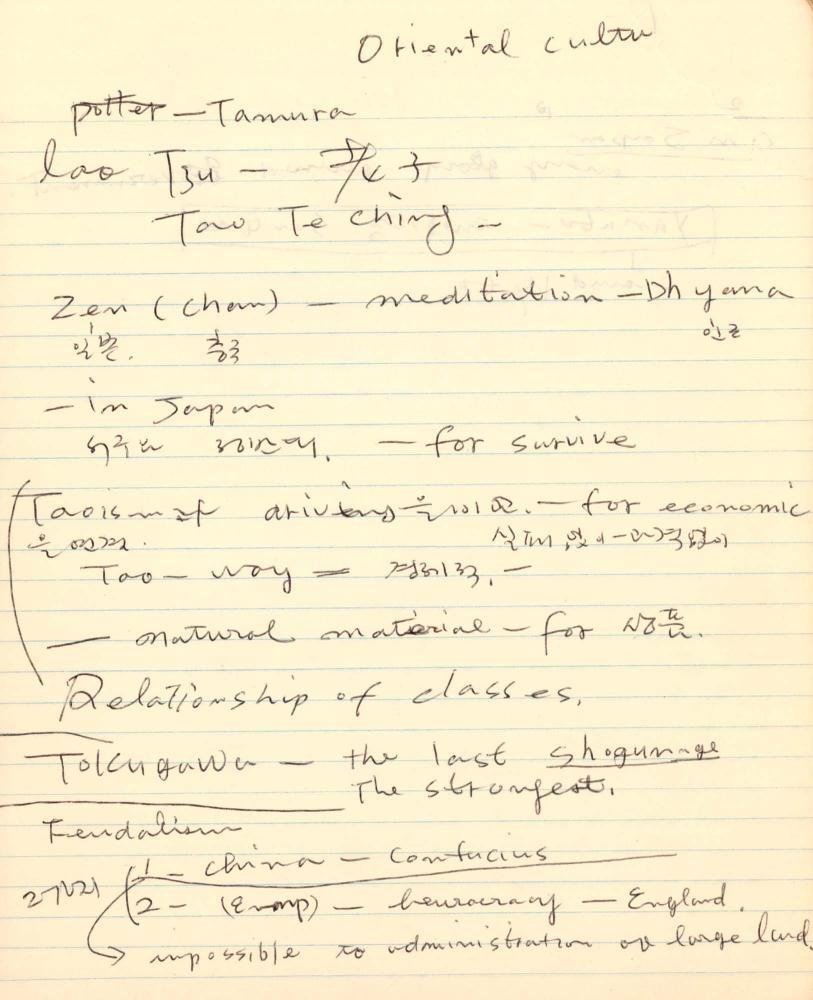 Oriental cultu
potter — Tamura
lao Tzu — 老子
Tao Te ching —
Zen (chan) — meditation — Dhyana
일본. 중국 인도
— in Japan
— for survive
Taoism driving — for economic
Tao — way =
— natural material — for 상품.
Relationship of classes,
Tokugawa — the last shogunage
The strongest.
Feudalism
2가지 1 — china — Confucius
2 — (Europ) — beurocracy — England.
→ impossible to administration of large land.